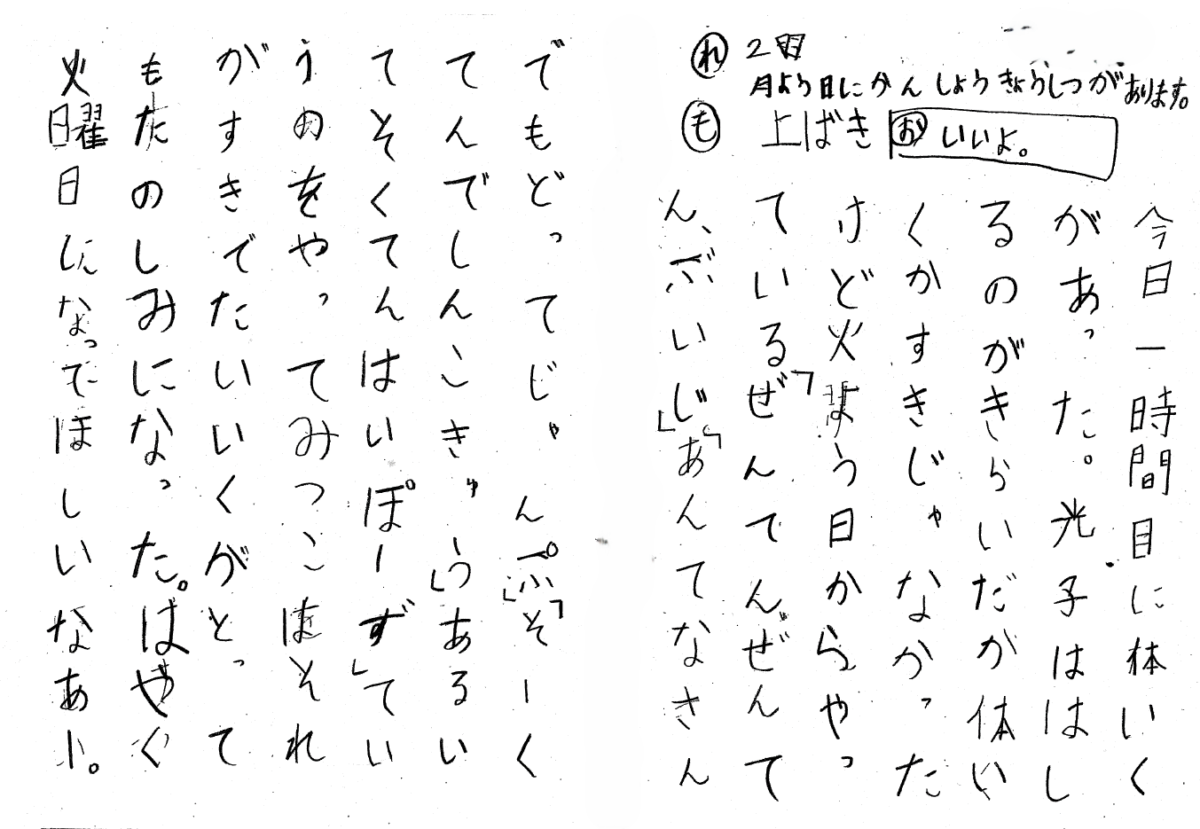 れ 2
月よう日にかんしょうきょうしつがあります。
も 上ばき お いいよ。
今日一時間目に体いく
があった。光子ははし
るのがきらいだか体い
くかすきじゃなかった
けど火よう日からやっ
ている「ぜんてんぜんて
ん、ぶいじ」「あんてなさん
でもどってじゃんぷ」「そーく
てんでしんこきゅう」「あるい
てそくてんはいぽーず」てい
うのをやってみつこはそれ
がすきでたいいくがとって
もたのしみになった。はやく
火曜日になってほしいなあー。